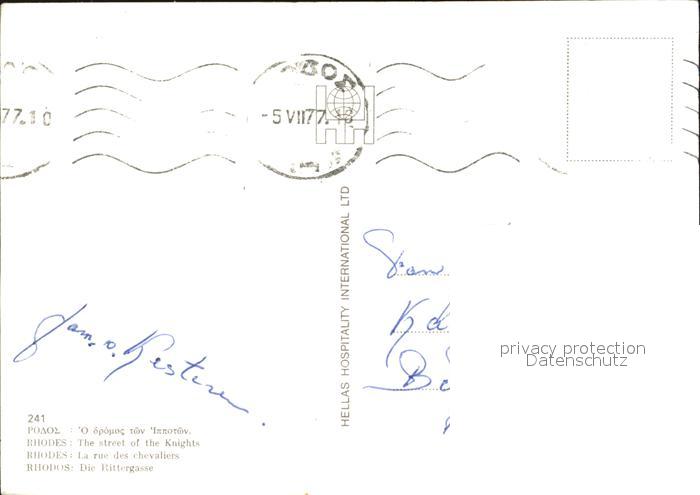 77.10
-5 VII77.10
HELLAS HOSPITALITY INTERNATIONAL LTD
Fam
Kd
privacy protection
Datenschutz
Fam. v.
241
ΡΟΔΟΣ : Ὁ δρόμος τῶν Ἱπποτῶν.
RHODES : The street of the Knights
RHODES : La rue des chevaliers
RHODOS: Die Rittergasse